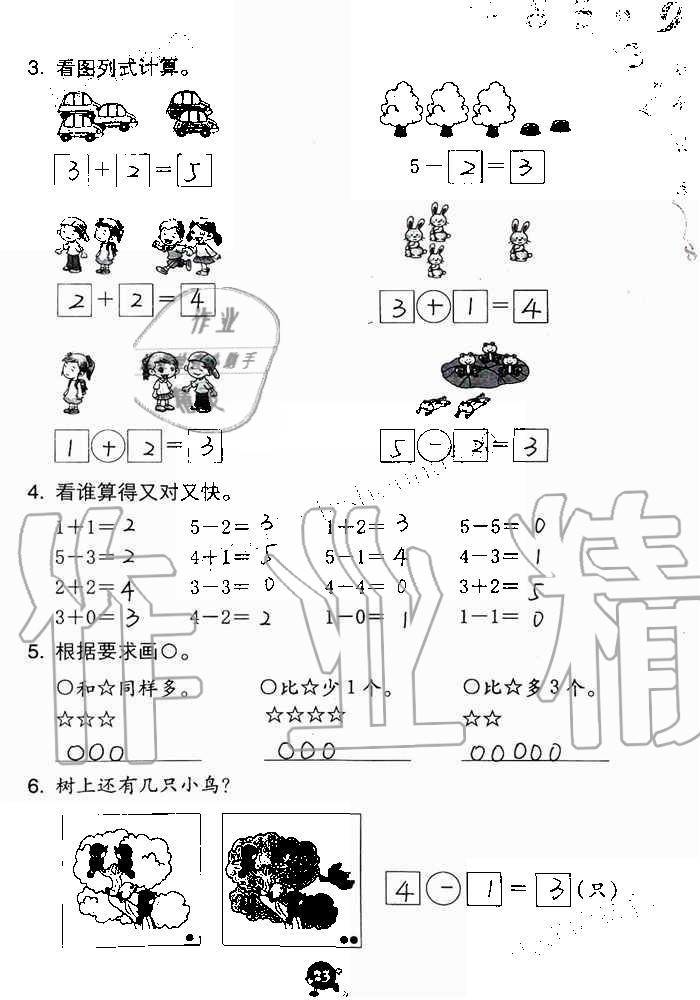 3. 看图列式计算。
3+2=5
5-2=3
2+2=4
3+1=4
1+2=3
5-2=3
4. 看谁算得又对又快。
1+1=2 5-2=3 1+2=3 5-5=0
5-3=2 4+1=5 5-1=4 4-3=1
2+2=4 3-3=0 4-4=0 3+2=5
3+0=3 4-2=2 1-0=1 1-1=0
5. 根据要求画○。
○和☆同样多。 ○比☆少1个。 ○比☆多3个。
☆☆☆ ☆☆☆☆ ☆☆
○○○ ○○○ ○○○○○
6. 树上还有几只小鸟？
4-1=3(只)
23
作业
作业精